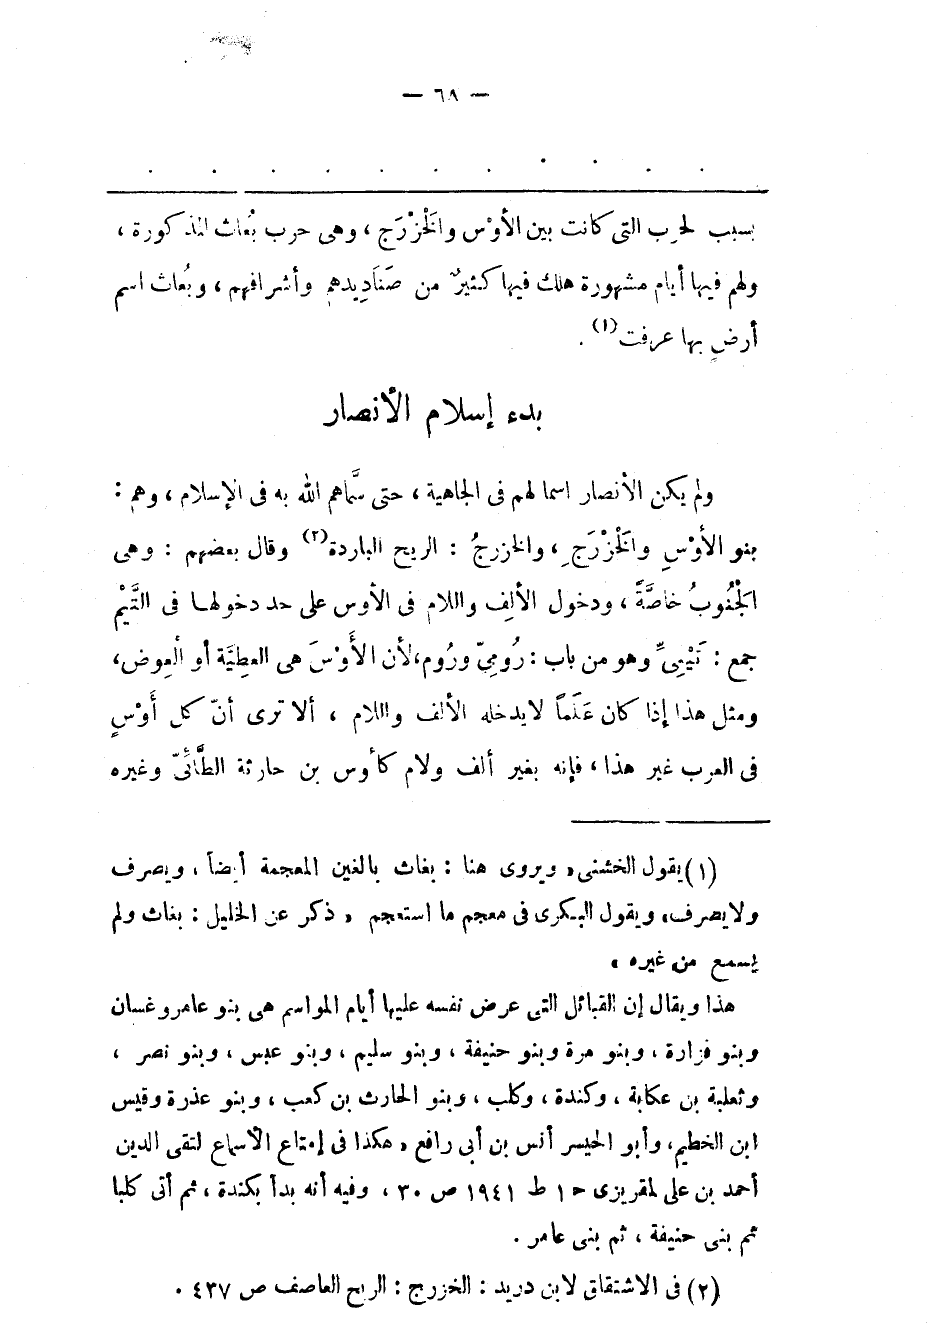 — ٦٨ —
بسبب الحرب التى كانت بين الأوْس والخَزْرَج ، وهى حرب بُعاث المذكورة ،
ولهم فيها أيام مشهورة هلك فيها كثيرٌ من صَنَادِيدهم وأشرافهم ، وبُعاث اسم
أرضٍ بها عرفت(١) .
بدء إسلام الأنصار
ولم يكن الأنصار اسما لهم فى الجاهية ، حتى سَّماهم الله به فى الإسلام ، وهم :
بنو الأوْسِ والخَزْرَجِ ، والخزرجُ : الريح الباردة(٢) وقال بعضهم : وهى
الجُنُوبُ خاصَّةً ، ودخول الألف واللام فى الأوس على حد دخولهـا فى التَّيْم
جمع : تَيْمِىّ وهو من باب : رُومِىّ ورُوم،لأن الأَوْسَ هى العطِيَّة أو العِوض،
ومثل هذا إذا كان عَلَماً لايدخله الألف واللام ، ألا ترى أنّ كل أَوْسٍ
فى العرب غير هذا ، فإنه بغير ألف ولام كأوس بن حارثة الطَّائىّ وغيره
(١) يقول الخشنى « ويروى هنا : بغاث بالغين المعجمة أيضاً ، ويصرف
ولا يصرف» ويقول البـكرى فى معجم ما استعجم « ذكر عن الخليل : بغاث ولم
يسمع من غيره »
هذا ويقال إن القبائل التى عرض نفسه عليها أيام المواسم هى بنو عامر وغسان
وبنو فزارة ، وبنو مرة وبنو حنيفة ، وبنو سليم ، وبنو عبس ، وبنو نصر ،
وثعلبة بن عكابة ، وكندة ، وكلب ، وبنو الحارث بن كعب ، وبنو عذرة وقيس
ابن الخطيم، وأبو الحيسر أنس بن أبى رافع « هكذا فى إمتاع الأسماع لتقى الدين
أحمد بن على لمقريزى ح ١ ط ١٩٤١ ص ٣٠ ، وفيه أنه بدأ بكندة ، ثم أتى كلبا
ثم بنى حنيفة ، ثم بنى عامر .
(٢) فى الاشتقاق لابن دريد : الخزرج : الريح العاصف ص ٤٣٧ .